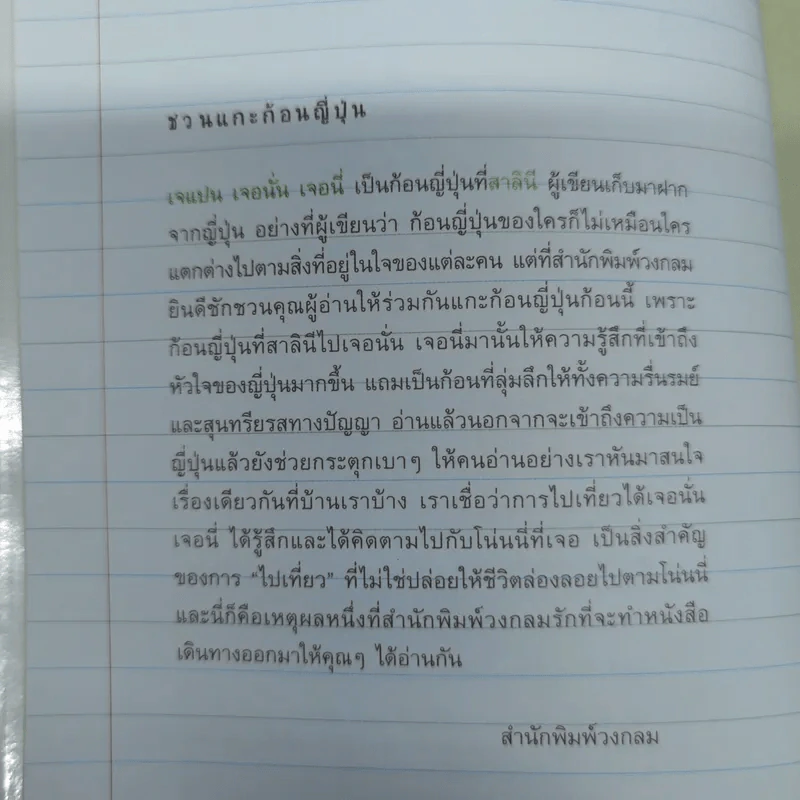 ชวนแกะก้อนญี่ปุ่น
เจแปน เจอนั่น เจอนี่ เป็นก้อนญี่ปุ่นที่สาลินี ผู้เขียนเก็บมาฝาก
จากญี่ปุ่น อย่างที่ผู้เขียนว่า ก้อนญี่ปุ่นของใครก็ไม่เหมือนใคร
แตกต่างไปตามสิ่งที่อยู่ในใจของแต่ละคน แต่ที่สำนักพิมพ์วงกลม
ยินดีชักชวนคุณผู้อ่านให้ร่วมกันแกะก้อนญี่ปุ่นก้อนนี้ เพราะ
ก้อนญี่ปุ่นที่สาลินีไปเจอนั่น เจอนี่มานั้นให้ความรู้สึกที่เข้าถึง
หัวใจของญี่ปุ่นมากขึ้น แถมเป็นก้อนที่ลุ่มลึกให้ทั้งความรื่นรมย์
และสุนทรียรสทางปัญญา อ่านแล้วนอกจากจะเข้าถึงความเป็น
ญี่ปุ่นแล้วยังช่วยกระตุกเบาๆ ให้คนอ่านอย่างเราหันมาสนใจ
เรื่องเดียวกันที่บ้านเราบ้าง เราเชื่อว่าการไปเที่ยวได้เจอนั่น
เจอนี่ ได้รู้สึกและได้คิดตามไปกับโน่นนี่ที่เจอ เป็นสิ่งสำคัญ
ของการ "ไปเที่ยว" ที่ไม่ใช่ปล่อยให้ชีวิตล่องลอยไปตามโน่นนี่
และนี่ก็คือเหตุผลหนึ่งที่สำนักพิมพ์วงกลมรักที่จะทำหนังสือ
เดินทางออกมาให้คุณๆ ได้อ่านกัน
สำนักพิมพ์วงกลม